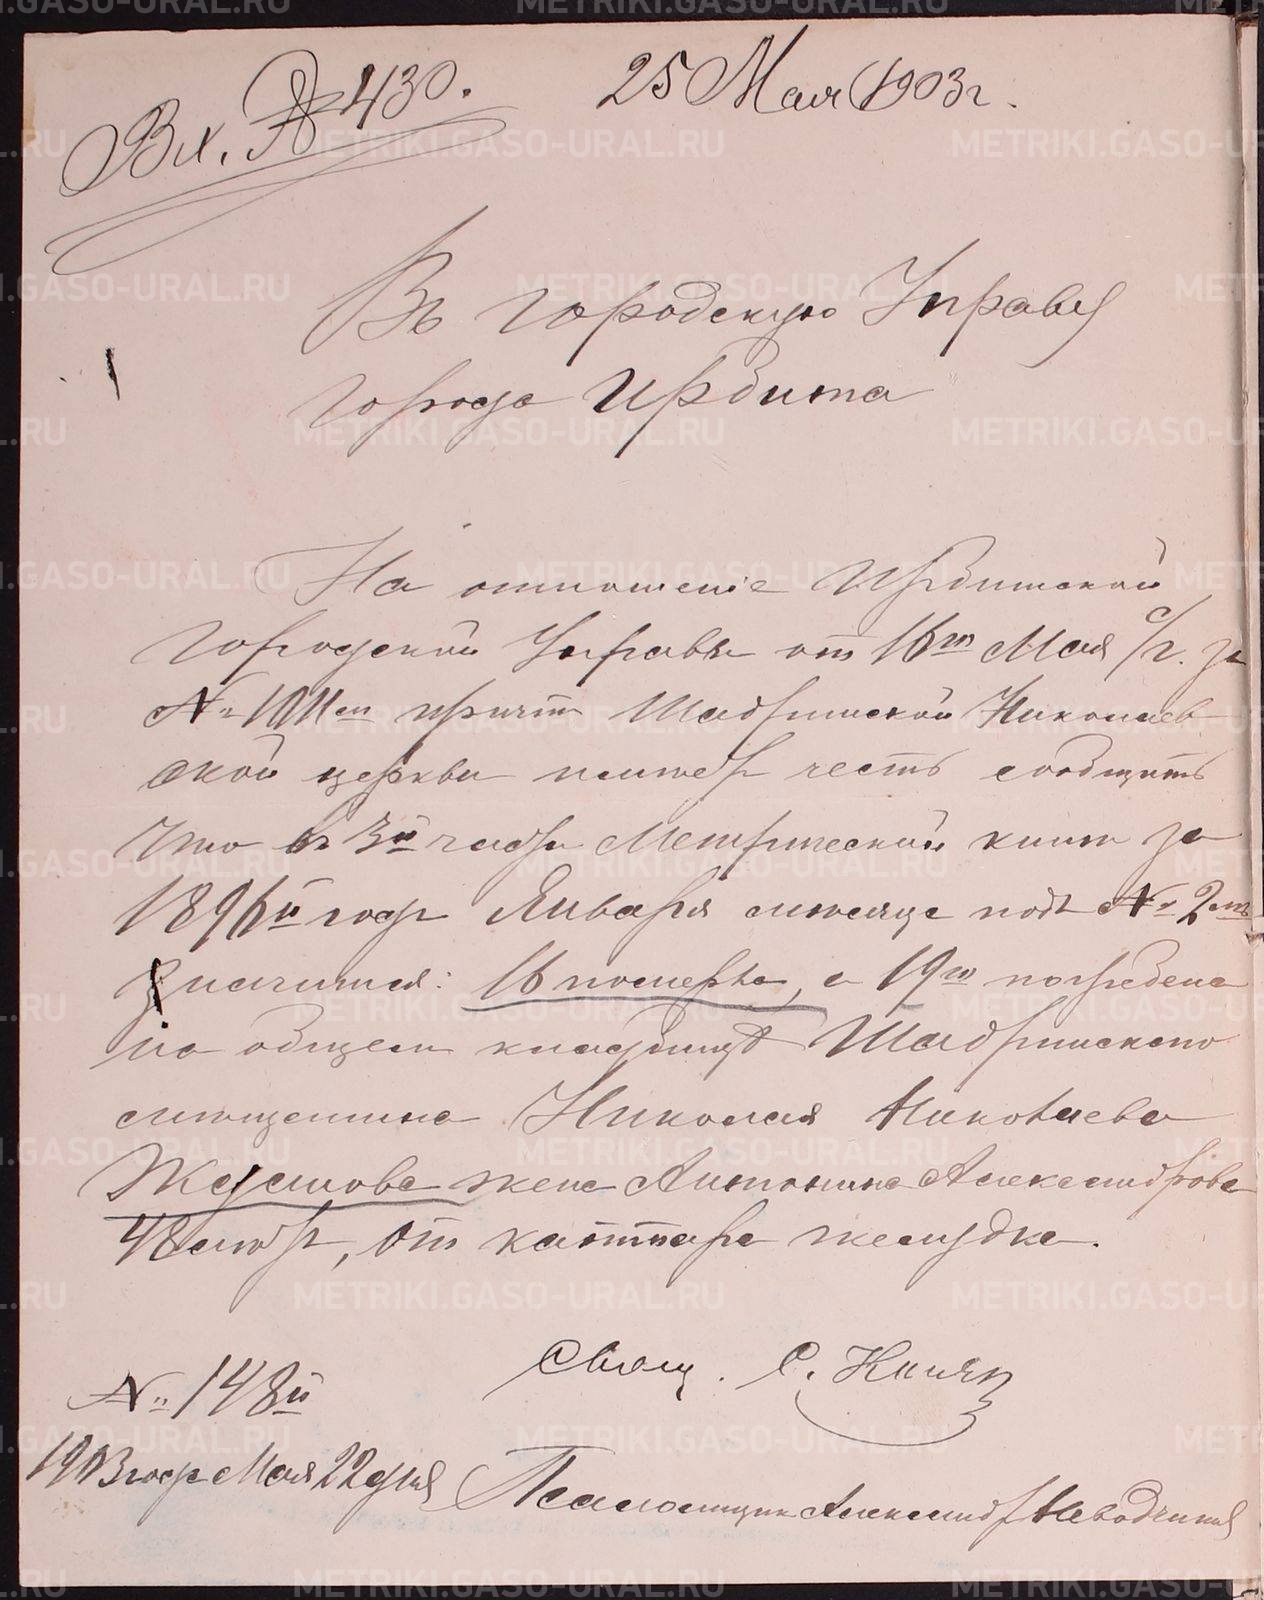 Вх. № 430.
25 Мая 1903 г.
Въ городскую Управу
города Ирбита
На отношеніе Ирбитской
городской Управы от 16го Мая с/г. за
№ 1011ем причт Шадринской Николаев-
ской церкви имеет честь сообщить
что въ 3й части Метрической книги за
1896й год Января месяца под № 2ем
значится: 16 померла, а 19го погребена
на общем кладбище Шадринскаго
мещанина Николая Николаева
Жданова жена Антонина Александрова
48 лет, от каттара желудка.
Свящ. С.
№ 148й
1903 года Мая 22 дня
Псаломщик Александр
METRIKI.GASO-URAL.RU